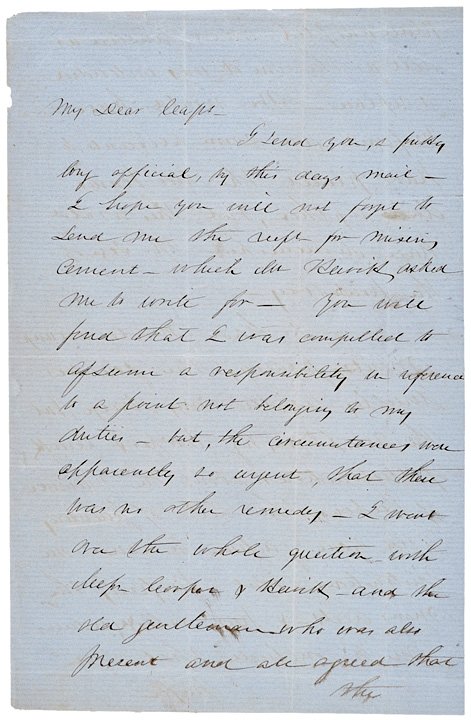 My Dear Capt-
I send you, a pretty
long official, by this days mail -
I hope you will not forget to
send me the rect for mixing
cement - which Mr Hewitt, asked
me to write for - You will
find that I was compelled to
assume a responsibility in reference
to a point not belonging to my
duties - but, the circumstances were
apparently so urgent, that there
was no other remedy - I went
over the whole question with
Messrs Cooper & Hewitt - and the
old gentleman who was also
present and all agreed that
the